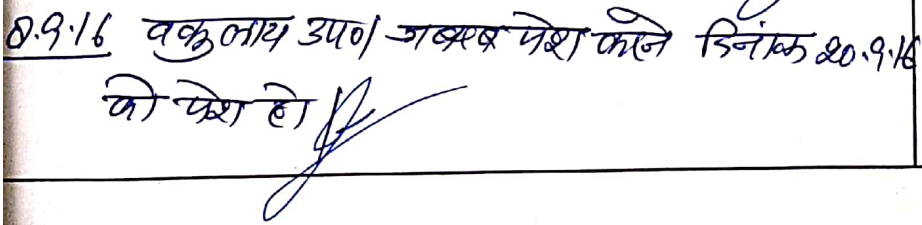 8.9.16 वकुलाय उप0। जबाब पेश करने दिनांक 20.9.16
को पेश हो